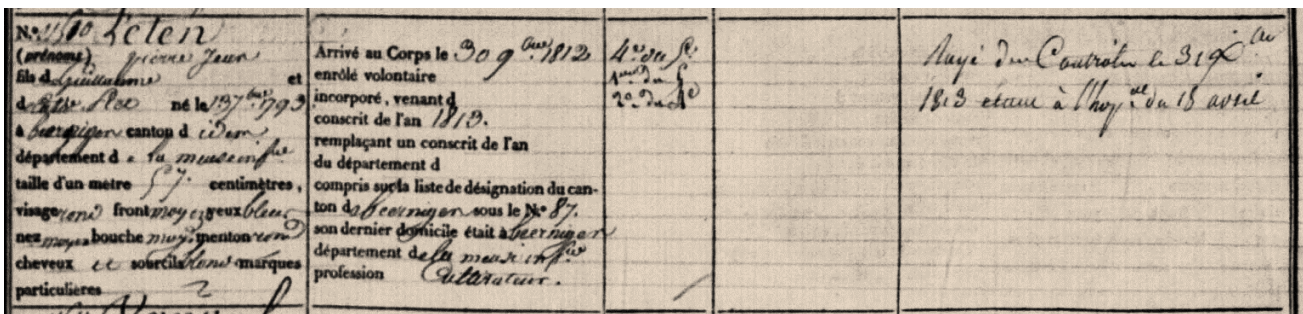 N.º 4510 Leten
(prénoms) pierre Jean
fils d Guillaume et
d né le 13 7bre 1793
à beeringen canton d idem
département de la meuse infre
taille d'un mètre 57. centimètres,
visage rond front moyen yeux bleus
nez moyen bouche moy. menton rond
cheveux et sourcils blond marques
particulières
Arrivé au Corps le 30 9bre 1812
enrôlé volontaire
incorporé, venant d
conscrit de l'an 1813.
remplaçant un conscrit de l'an
du département d
compris sur la liste de désignation du can-
ton de beeringen sous le N.º 87.
son dernier domicile était à beeringen
département de la meuse infre
profession Cultivateur.
4e du
du
2e du
Rayé du Controle le 31 Xbre
1813 étant à l'hopal du 18 avril